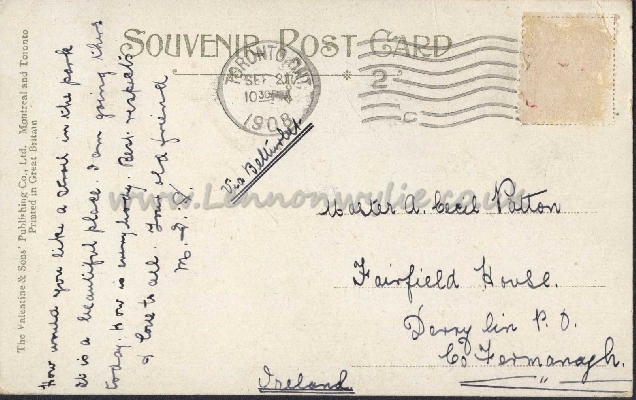 SOUVENIR POST CARD
TORONTO, ONT
SEP 21
1030
1908
2
C
Via Belturbet
Master A. Cecil Patton
Fairfield House.
Derrylin P.O.
Co Fermanagh.
Ireland
How would you like a stroll in the park
it is a beautiful place. I am going thro
today. How is everybody. Best respects
& love to all. Your old friend
M. D. G.
The Valentine & Sons' Publishing Co., Ltd. Montreal and Toronto
Printed in Great Britain
www.Lennonwylie.co.uk